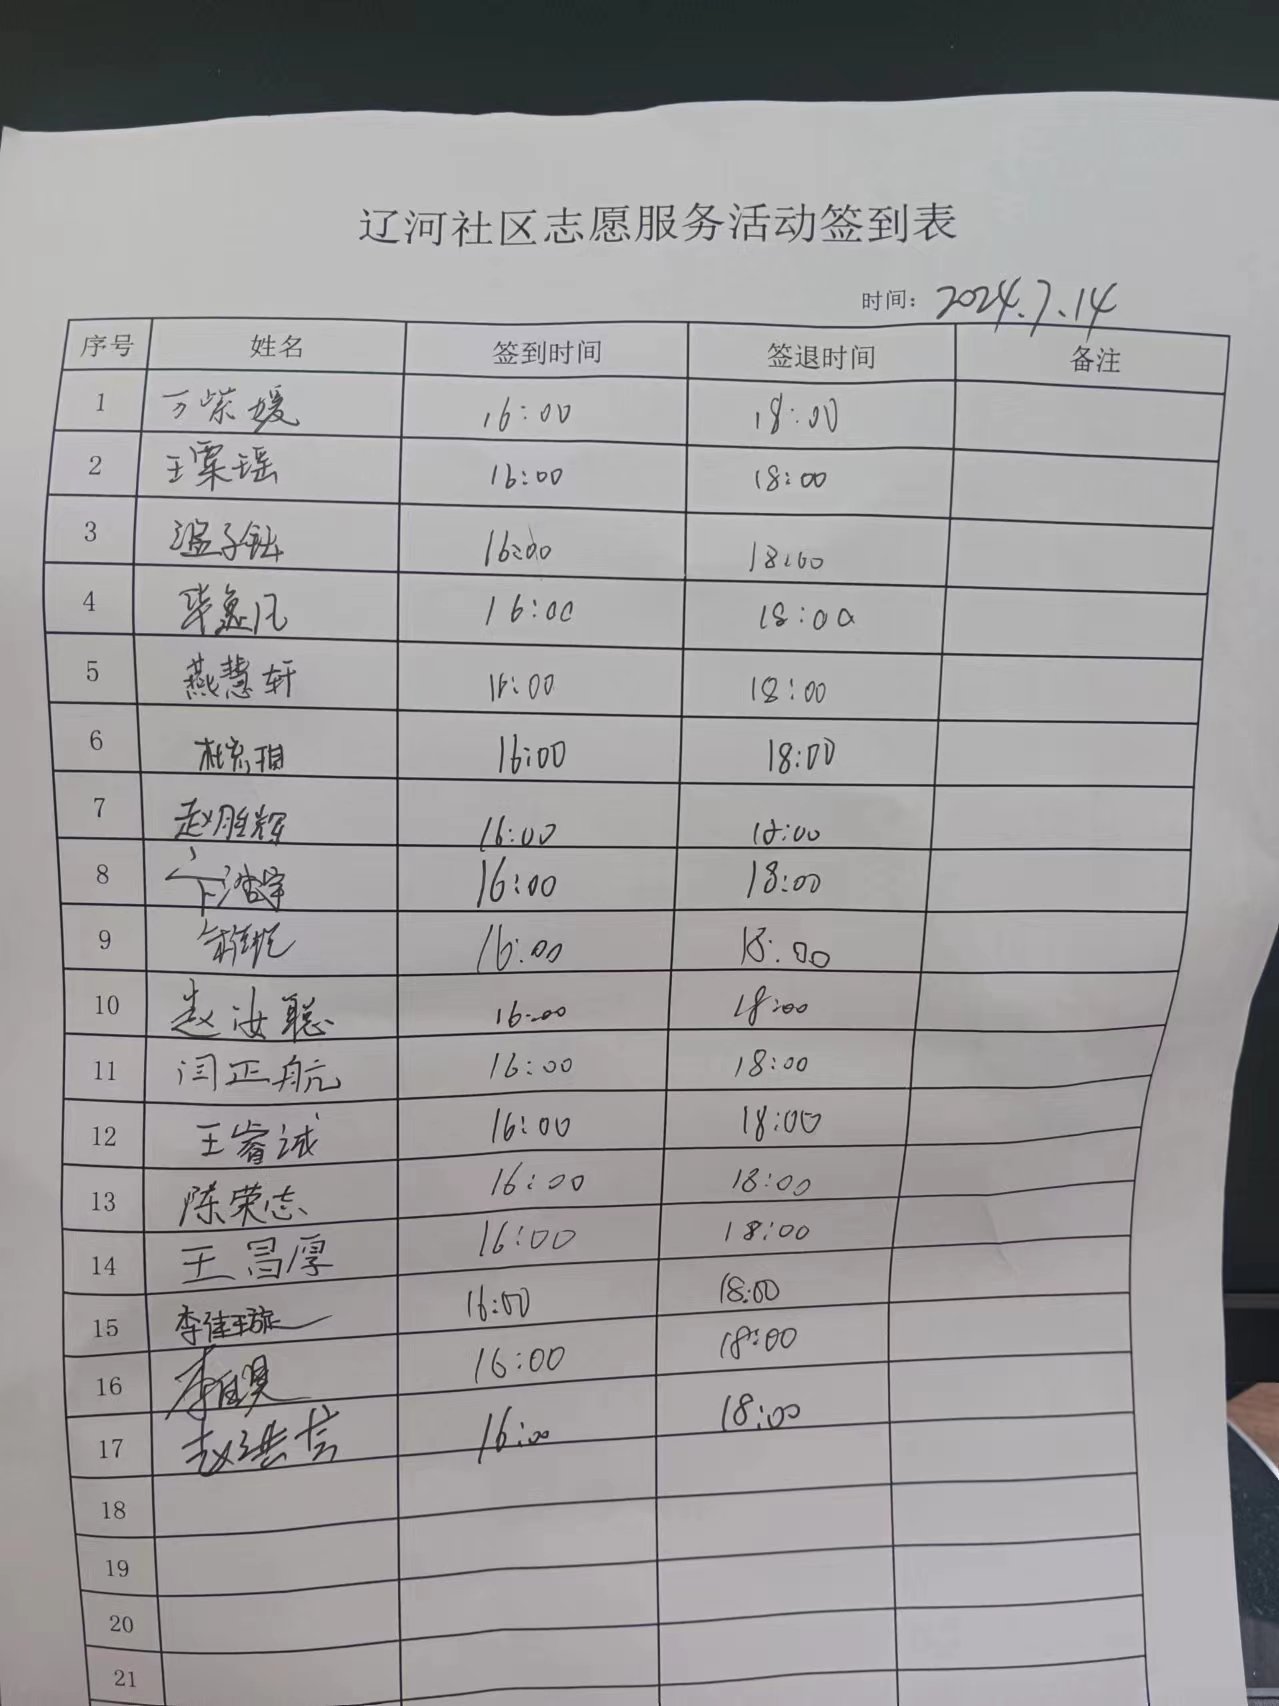 辽河社区志愿服务活动签到表
时间: 2024.7.14
序号 姓名 签到时间 签退时间 备注
1 万紫媛 16:00 18:00
2 王粟瑶 16:00 18:00
3 温子钰 16:00 18:00
4 16:00 18:00
5 燕慧轩 16:00 18:00
6 16:00 18:00
7 赵胜辉 16:00 18:00
8 16:00 18:00
9 16:00 18:00
10 赵汝聪 16:00 18:00
11 闫正航 16:00 18:00
12 王睿诚 16:00 18:00
13 陈荣志 16:00 18:00
14 王昌厚 16:00 18:00
15 李佳璇 16:00 18:00
16 16:00 18:00
17 16:00 18:00
18
19
20
21